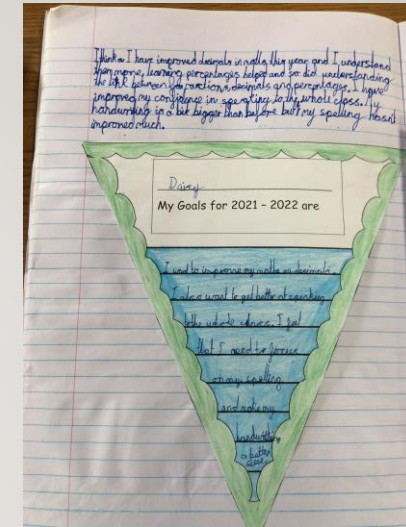 I think I have improved decimals in maths this year and I understand
them more, learning percentages helped and so did understanding
the link between fractions, decimals and percentages. I have
improved my confidence in speaking to the whole class. My
handwriting is a bit bigger than before but my spelling hasn't
improved much.
Daisy
My Goals for 2021 - 2022 are
I want to improve my maths on decimals.
I also want to get better at speaking
to the whole class. I feel
that I need to focus
on my spelling
and make my
handwriting
a better
size.